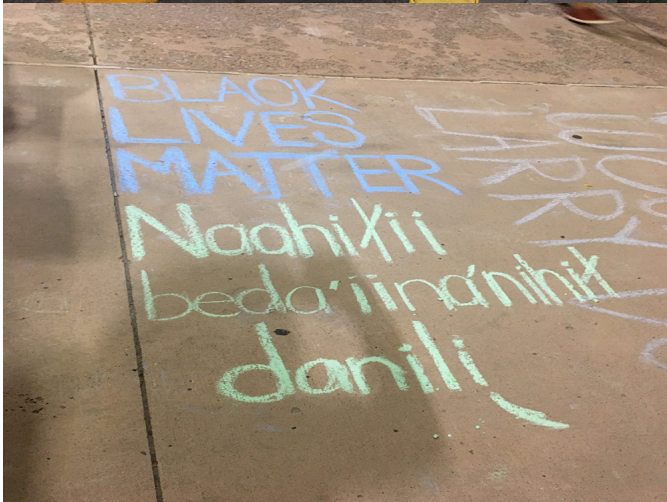 BLACK
LIVES
MATTER
Naahiłii
beda'iiná'nilhił
danilį
LARRY